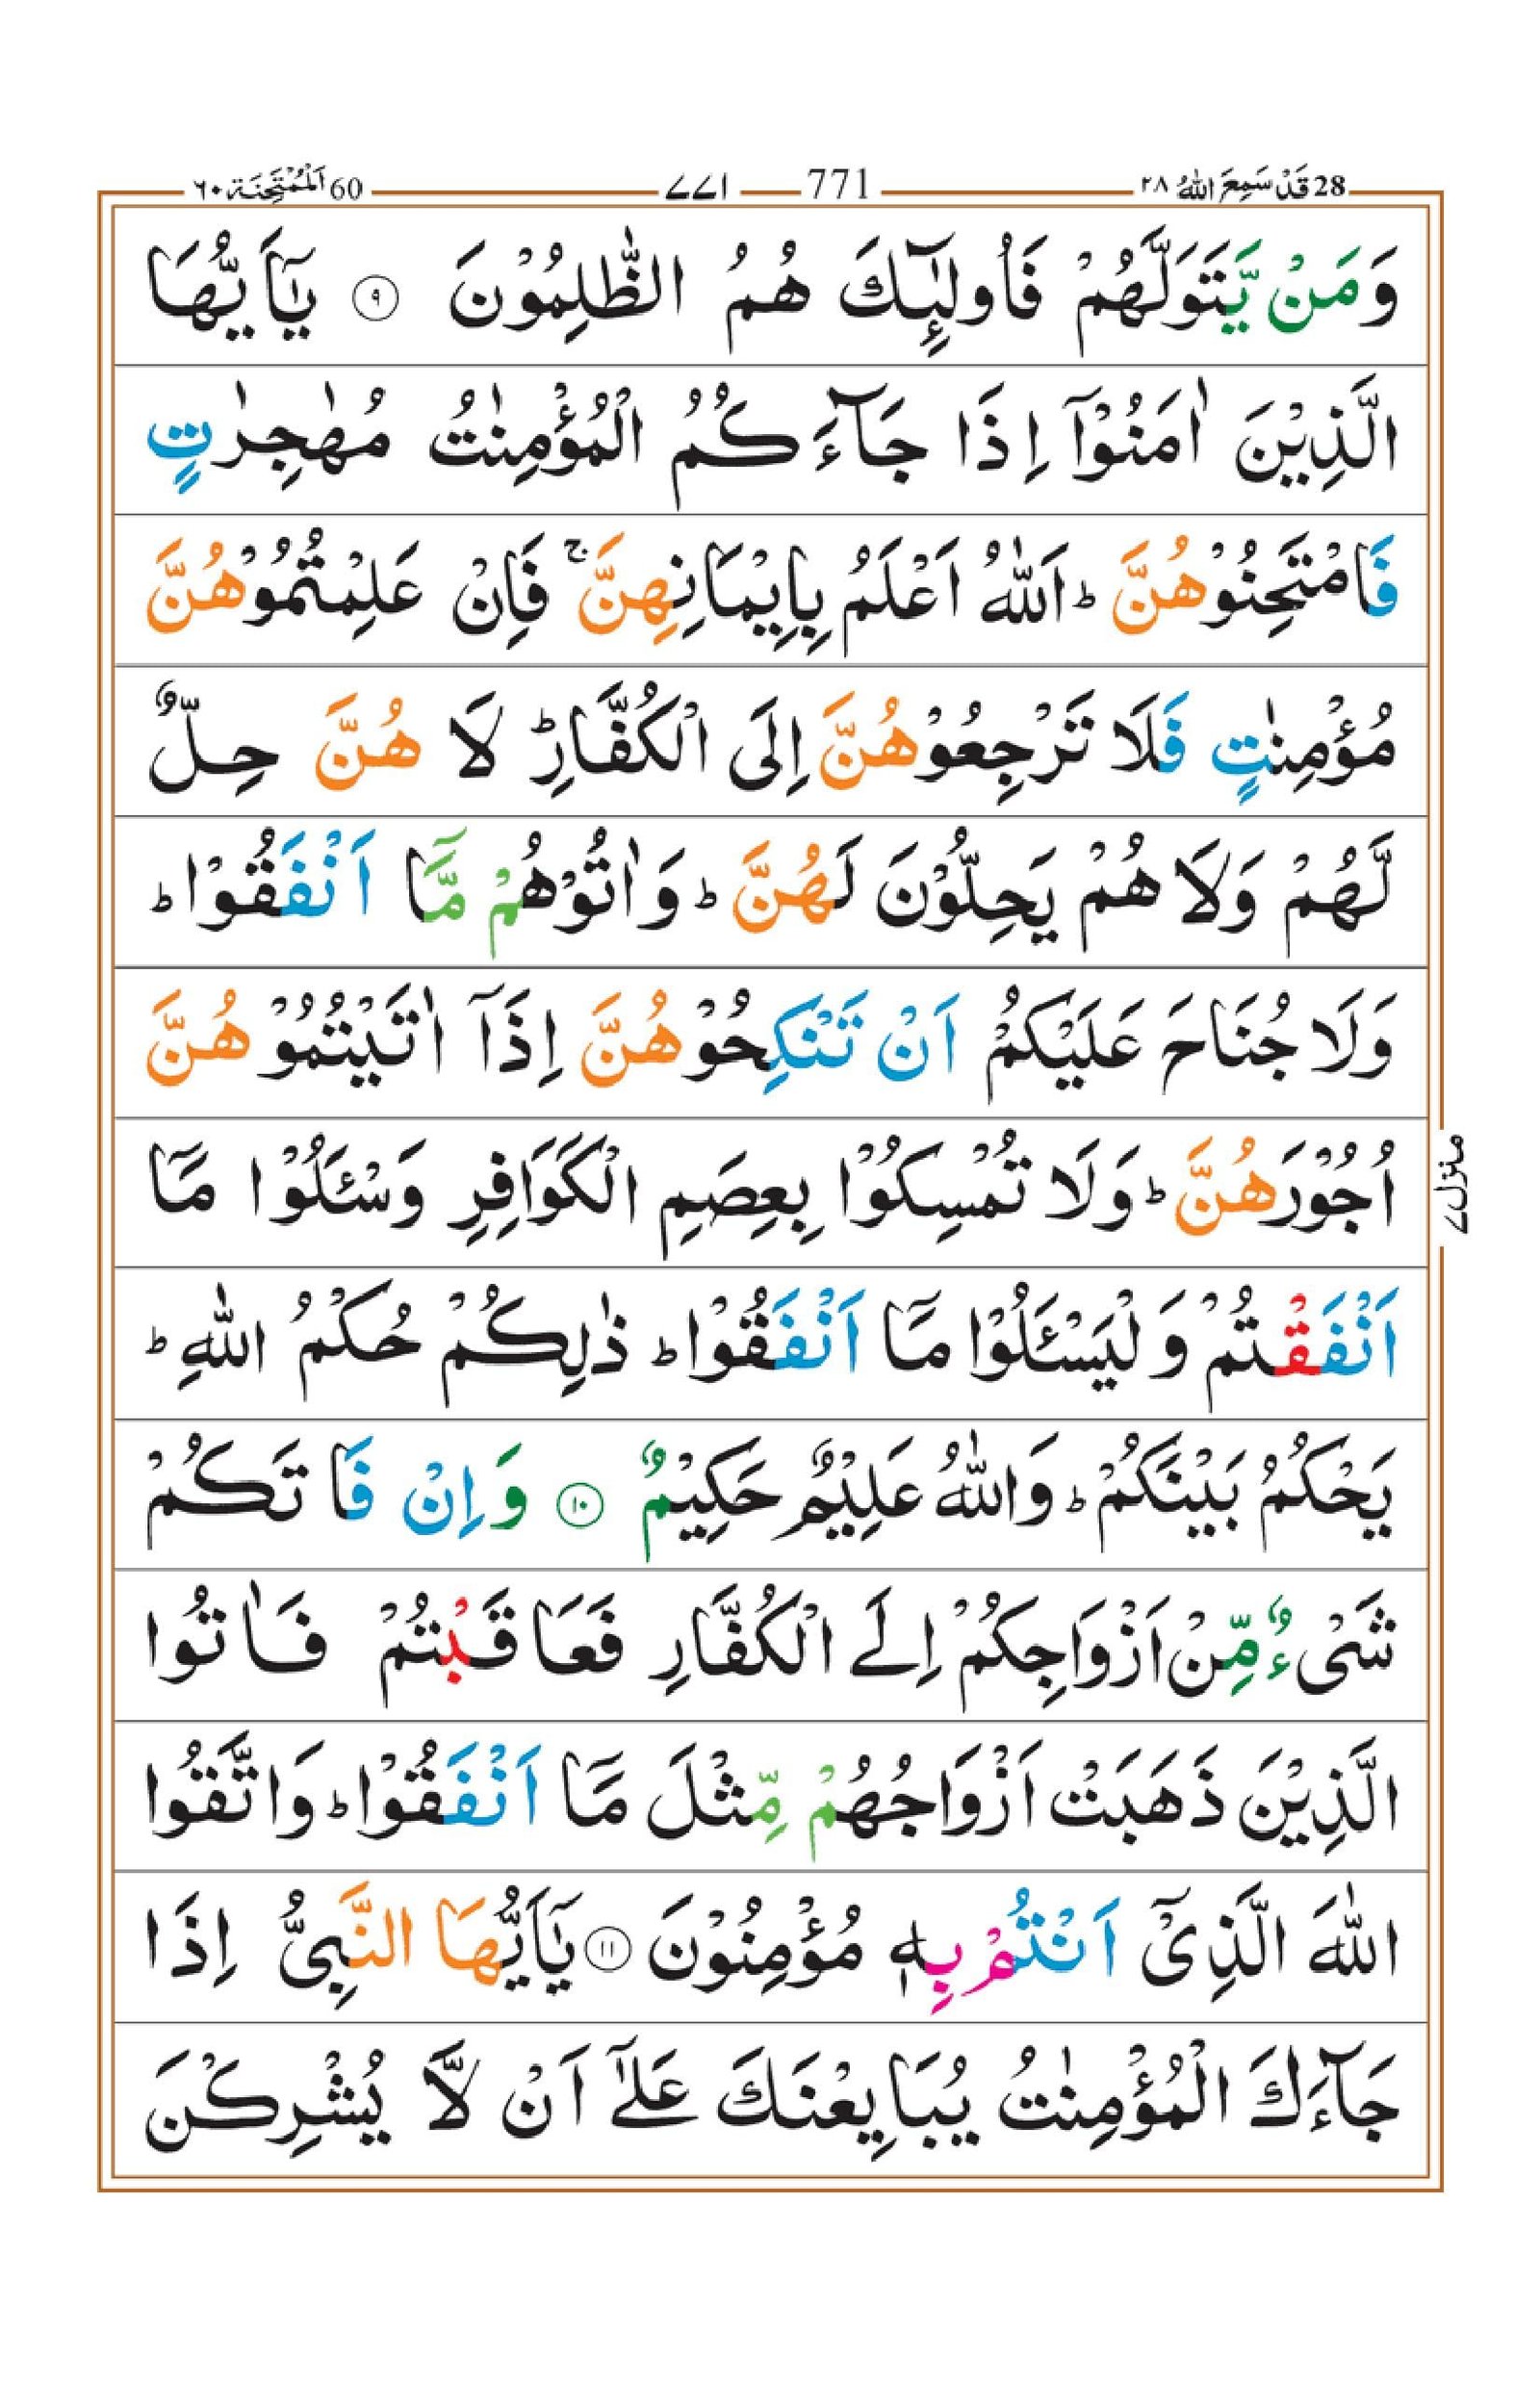 28 قَدْ سَمِعَ اللّٰهُ ٢٨ 771 ٧٧١ 60 اَلْمُمْتَحِنَة ٦٠
وَمَنْ يَّتَوَلَّهُمْ فَاُولٰٓئِكَ هُمُ الظّٰلِمُوْنَ ۹ يٰۤاَيُّهَا
الَّذِيْنَ اٰمَنُوْۤا اِذَا جَآءَكُمُ الْمُؤْمِنٰتُ مُهٰجِرٰتٍ
فَامْتَحِنُوْهُنَّ ؕ اَللّٰهُ اَعْلَمُ بِاِيْمَانِهِنَّ ۚ فَاِنْ عَلِمْتُمُوْهُنَّ
مُؤْمِنٰتٍ فَلَا تَرْجِعُوْهُنَّ اِلَى الْكُفَّارِ ؕ لَا هُنَّ حِلٌّ
لَّهُمْ وَلَا هُمْ يَحِلُّوْنَ لَهُنَّ ؕ وَاٰتُوْهُمْ مَّاۤ اَنْفَقُوْا ؕ
وَلَا جُنَاحَ عَلَيْكُمْ اَنْ تَنْكِحُوْهُنَّ اِذَاۤ اٰتَيْتُمُوْهُنَّ
اُجُوْرَهُنَّ ؕ وَلَا تُمْسِكُوْا بِعِصَمِ الْكَوَافِرِ وَسْـَٔلُوْا مَاۤ
اَنْفَقْتُمْ وَلْيَسْـَٔلُوْا مَاۤ اَنْفَقُوْا ؕ ذٰلِكُمْ حُكْمُ اللّٰهِ ؕ
يَحْكُمُ بَيْنَكُمْ ؕ وَاللّٰهُ عَلِيْمٌ حَكِيْمٌ ۱۰ وَاِنْ فَاتَكُمْ
شَىْءٌ مِّنْ اَزْوَاجِكُمْ اِلَى الْكُفَّارِ فَعَاقَبْتُمْ فَاٰتُوا
الَّذِيْنَ ذَهَبَتْ اَزْوَاجُهُمْ مِّثْلَ مَاۤ اَنْفَقُوْا ؕ وَاتَّقُوا
اللّٰهَ الَّذِىْۤ اَنْتُمْ بِهٖ مُؤْمِنُوْنَ ۱۱ يٰۤاَيُّهَا النَّبِىُّ اِذَا
جَآءَكَ الْمُؤْمِنٰتُ يُبَايِعْنَكَ عَلٰٓى اَنْ لَّا يُشْرِكْنَ
منزل ٧